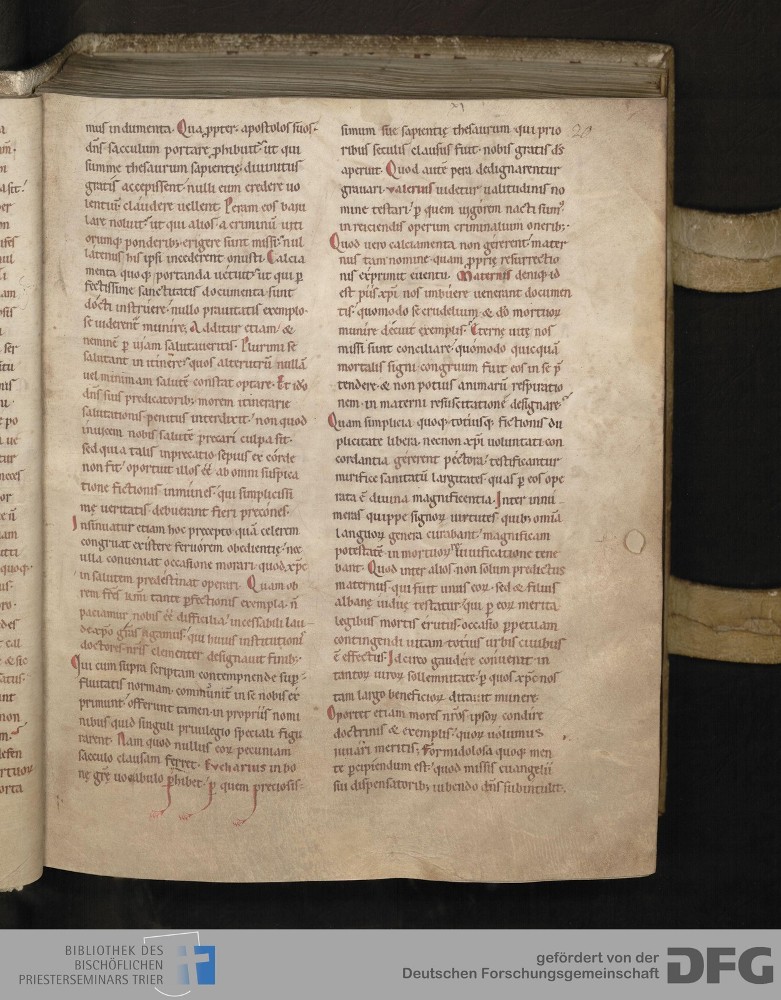 mus indumenta. Qua ꝓpter apostolos suos.
dñs sacculum portare ꝓhibuit. ut qui
summe thesaurum sapientię divinitus
gratis accepissent. nulli eum credere uo
lentium claudere uellent. Peram eos baiu
lare noluit. ut qui alios a criminū uiti
orumq; ponderibꝫ erigere sunt missi. nul
latenus his ipsi incederent onusti. Calcia
menta quoq; portanda uetuit. ut qui ꝑ
fectissime sanctitatis documenta sunt
docti instruere. nullo prauitatis exemplo
se uiderent munire. Additur etiam. &
neminē ꝑ uiam salutaueritis. Plurimi se
salutant in itinere. quos alterutrū nullā
uel minimam salutē constat optare. Et ido
dñs suis predicatoribꝫ morem itinerarie
salutationis penitus interdixit. non quod
inuicem nobis salutē precari culpa sit.
sed quia talis inprecatio sepius ex corde
non fit. oportuit illos eē ab omni suspica
tione fictionis inmunes. qui simplicissi
mę ueritatis debuerant fieri precones.
Insinuatur etiam hoc precepto quā celerem
congruat existere feruorem obedientię. nec
ulla conueniat occasione morari. quod xp̄c
in salutem predestinat operari. Quam ob
rem fr̄s kmi tante ꝑfectionis exempla. n̄
paciamur nobis eē difficilia. incessabili lau
de xp̄o gr̄as agamus. qui huius institutionis
doctores nr̄is clementer designauit finibꝫ.
Qui cum supra scriptam contempnende sup̄
fluitatis normam. communit̄ in se nobis ex
primunt. offerunt tamen in propriis nomi
nibus quid singuli priuilegio speciali figu
rarent. Nam quod nullus eoꝝ pecuniam
sacculo clausam ferret. Evcharius in bo
nę grę uocabulo ꝓhibet. ꝑ quem preciosis
20
simum suę sapientię thesaurum qui prio
ribus seculis clausus fuit. nobis gratis ds̄
aperuit. Quod autē pera dedignarentur
grauari. valerius uidetur ualitudinis no
mine testari. ꝑ quem uigorem nacti sum.
in reiciendis operum criminalium oneribꝫ.
Quod uero calciamenta non gererent. mater
nus tam nomine quam ꝓprię resurrectio
nis exprimit euentu. Maternis deniq; id
est piis xp̄i nos imbuere uenerant documen
tis. quomodo se crudelium. & dō mortuoꝝ
munire decuit exemplis. Eternę uitę nos
missi sunt conciliare. quomodo quicquā
mortalis signi congruum fuit eos in se p̄
tendere. & non potius animarū respiratio
nem. in materni resuscitatione designare.
Quam simplicia quoq; totiusq; fictionis du
plicitate libera. necnon xp̄i uoluntati con
cordantia gererent pectora. testificantur
mirificę sanitatū largitates. quas ꝑ eos ope
rata ē divina magnificentia. Inter innu
meras quippe signoꝝ uirtutes. quibꝫ omīa
languoꝝ genera curabant. magnificam
potestatē. in mortuoꝝ uiuificatione tene
bant. Quod inter alios non solum predictus
maternus. qui fuit unus eoꝝ. sed & filius
albanę uiduę testatur. qui ꝑ eoꝝ merita
legibus mortis erutus. occasio ꝑpetuam
contingendi uitam. totius urbis ciuibus
ē effectus. Idcirco gaudere conuenit in
tantoꝝ uiroꝝ sollemnitate. ꝑ quos xp̄c nos
tam largo beneficioꝝ ditauit munere.
Oportet etiam mores nr̄os ipsoꝝ condire
doctrinis & exemplis. quoꝝ uolumus
iuuari meritis. Formidolosa quoq; men
te percipiendum est. quod missis euangelii
sui dispensatoribꝫ. iubendo dñs subintulit.
BIBLIOTHEK DES
BISCHÖFLICHEN
PRIESTERSEMINARS TRIER
gefördert von der
Deutschen Forschungsgemeinschaft
DFG